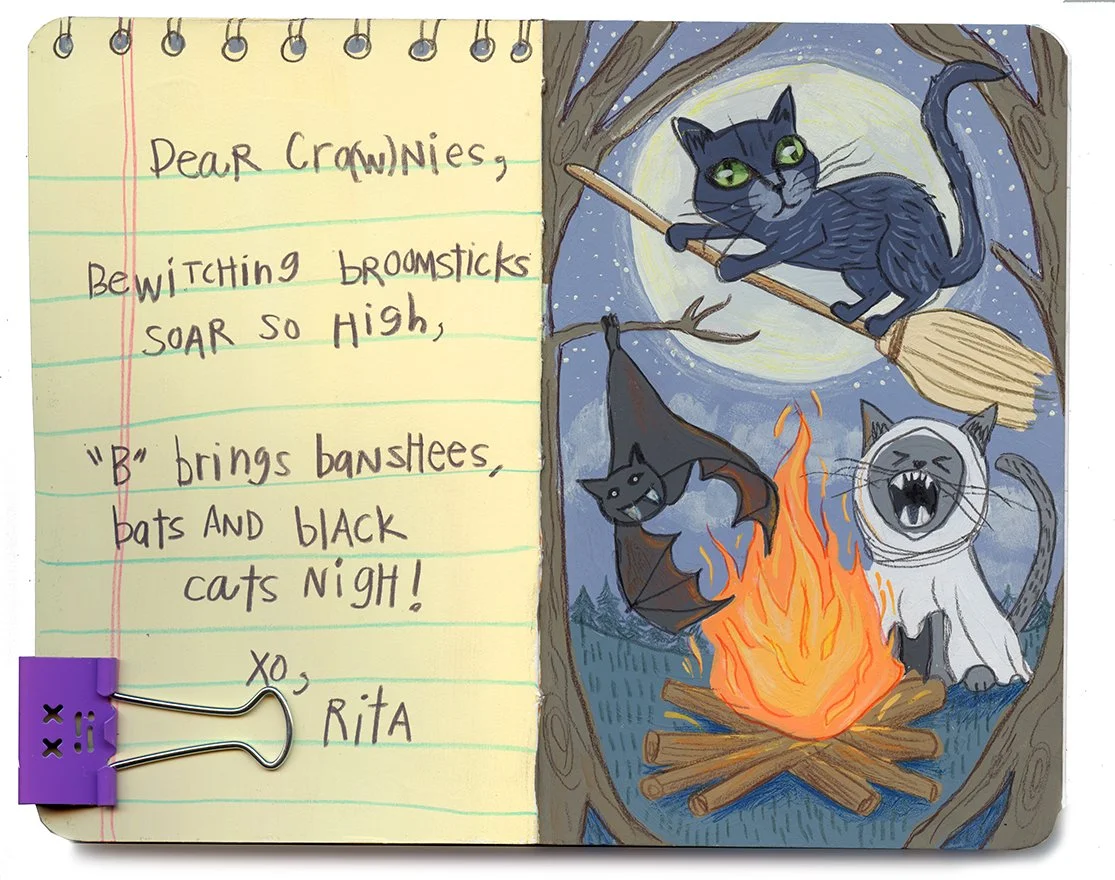 Dear Cro(w)nies,
Bewitching broomsticks
soar so high,
"B" brings banshees,
bats and black
cats nigh!
xo,
Rita